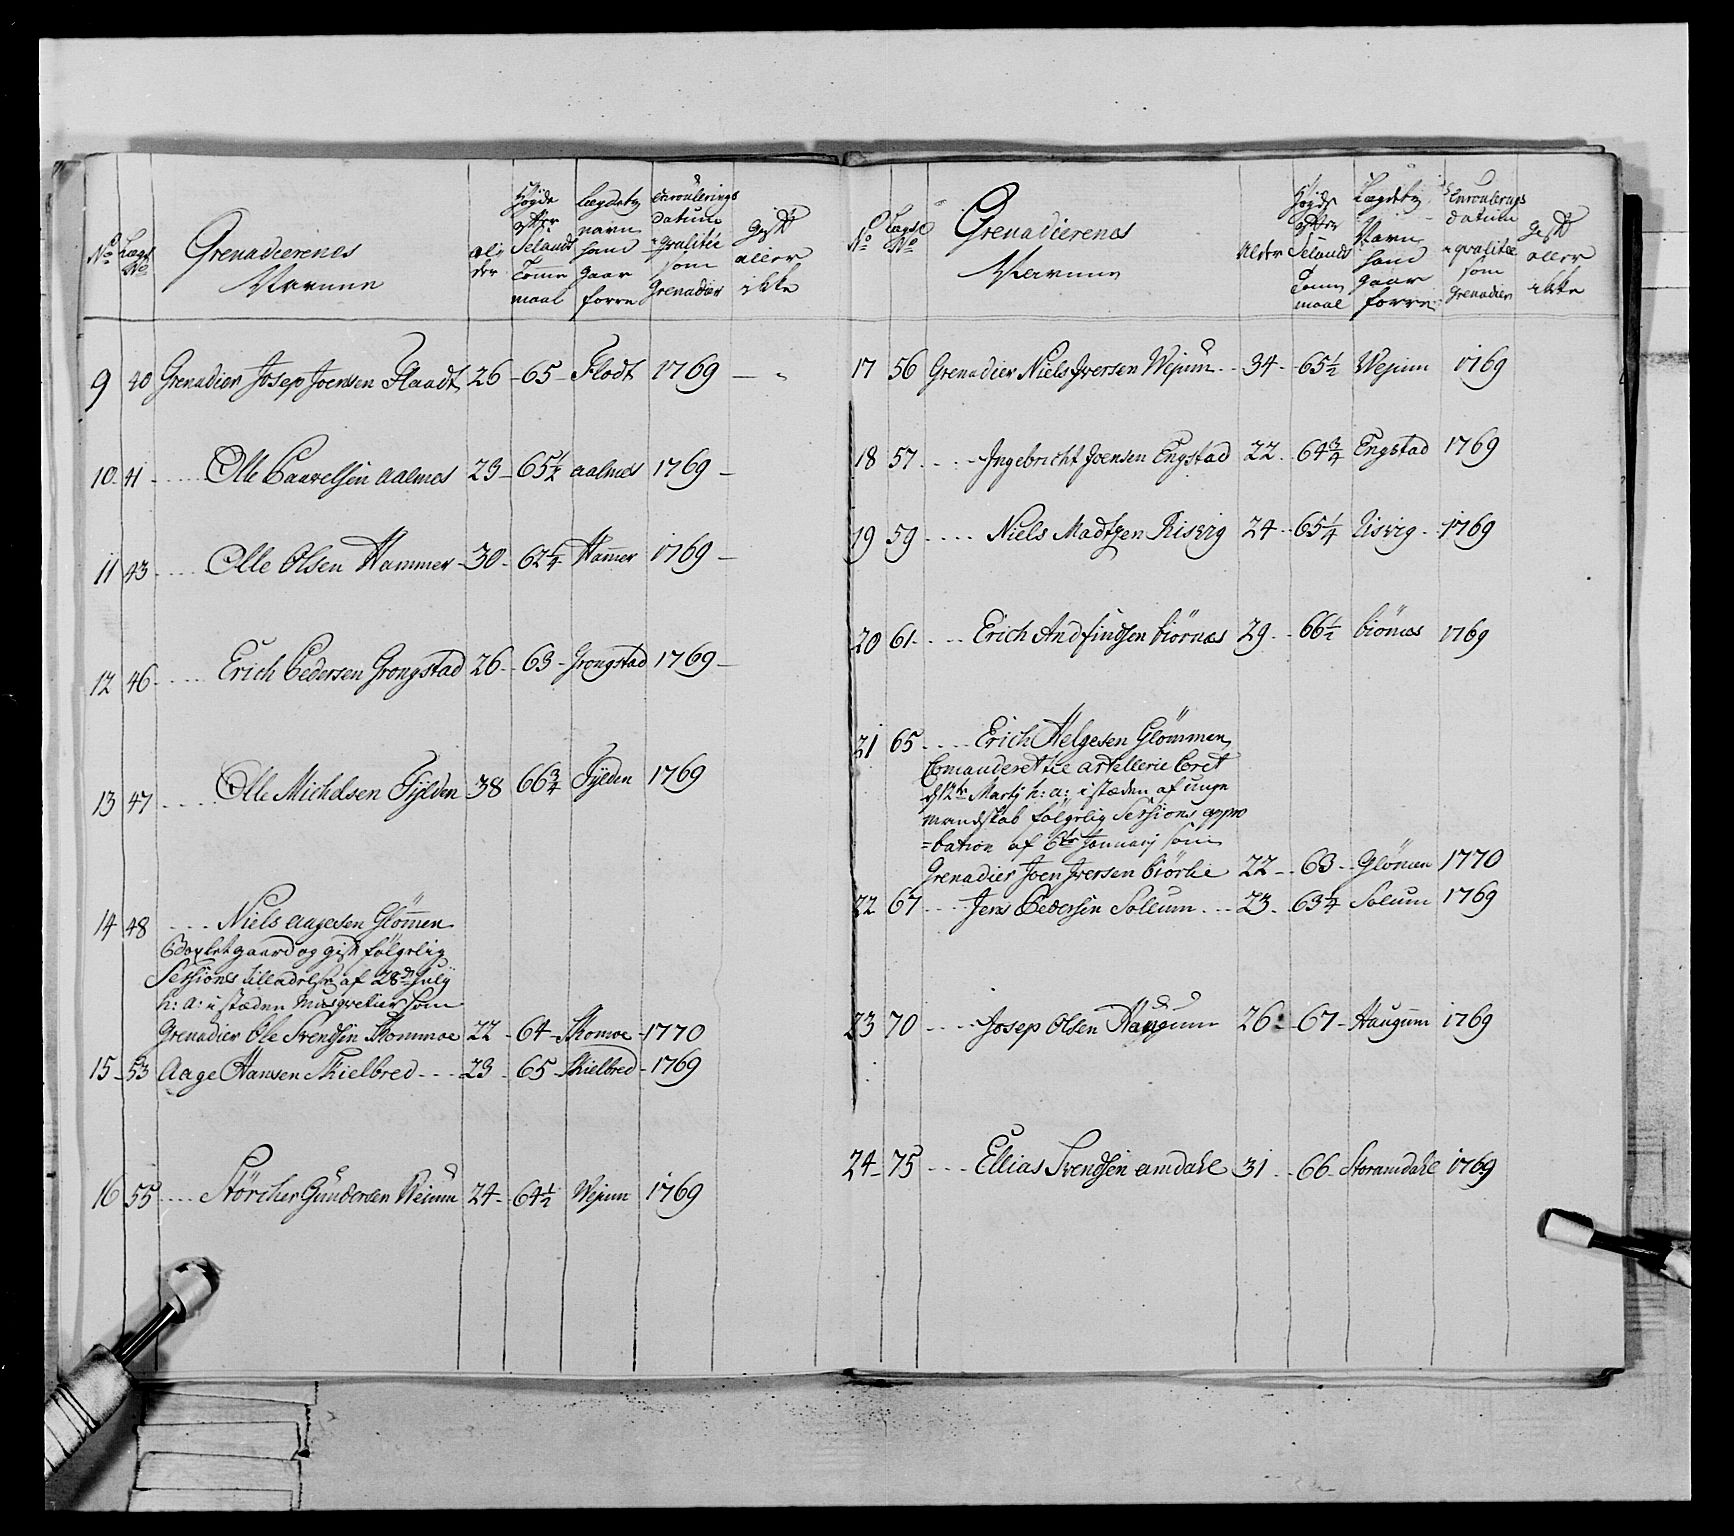 No Lægs No Grenadierenes Navnne Alder Høyde efter Selands Tomme maal Lægdets navn hand gaar forre Enroulerings datum i qvalitée som Grenadier Gift aller ikke
9 40 Grenadier Josep Joensen Flaadt 26 65 Flodt 1769
10 41 Olle Paavelsen Aalmes 23 65½ aalmes 1769
11 43 Olle Olsen Hammer 30 62¼ Ham̄er 1769
12 46 Erich Pedersen Grongstad 26 63 Grongstad 1769
13 47 Olle Michelsen Fÿlden 38 66¾ Fÿlden 1769
14 48 Niels Aagesen Glöm̄en
Boxlet gaard og gift følgelig
Sessions tilladelse af 28de Julÿ
h: a: i stæden Musqvetier som
Grenadier Ole Svendsen Skommoe 22 64 Skomoe 1770
15 53 Aage Hansen Skielbred 23 65 Skielbred 1769
16 55 Störcher Gundersen Weium 24 64½ Wejum 1769
No Lægs No Grenadierenes Navnne Alder Høyde efter Selands Tomme maal Lægdets Navn hand gaar forre Enroulerings datum i qvalitée som Grenadier Gift aller ikke
17 56 Grenadier Niels Iversen Wejum 34 65½ Wejum 1769
18 57 Ingebricht Joensen Engstad 22 64¾ Engstad 1769
19 59 Niels Madtzen Risvig 24 65¼ Risvig 1769
20 61 Erich Andfindsen Biörnes 29 66½ Biörnes 1769
21 65 Erich Helgesen Glömmen
Comanderet til Artellerie Coret
d 12te Martÿ h: a: i stæden af unge
mandskab følgelig Sessions appro
=bation af 6te Januarj som
Grenadier Joen Iversen Biörlie 22 63 Glömen 1770
22 67 Jens Pedersen Sollum 23 63¼ Solum 1769
23 70 Josep Olsen Haugum 26 67 Haugum 1769
24 75 Ellias Svendsen amdahl 31 66 Storamdahl 1769